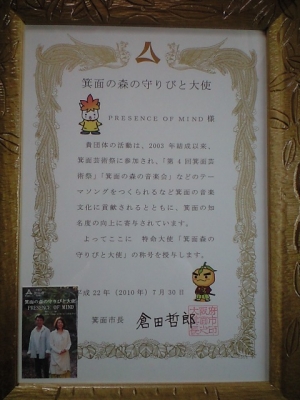 箕面の森の守りびと大使
PRESENCE OF MIND 様
貴団体の活動は、2003 年結成以来、
箕面芸術祭に参加され、「第 4 回箕面芸
術祭」「箕面の森の音楽会」などのテー
マソングをつくられるなど箕面の音楽
文化に貢献されるとともに、箕面の知
名度の向上に寄与されています。
よってここに 特命大使「箕面森の
守りびと大使」の称号を授与します。
平成 22年（2010 年）7 月 30 日
箕面市長 倉田哲郎
箕面の森の守りびと大使
PRESENCE OF MIND